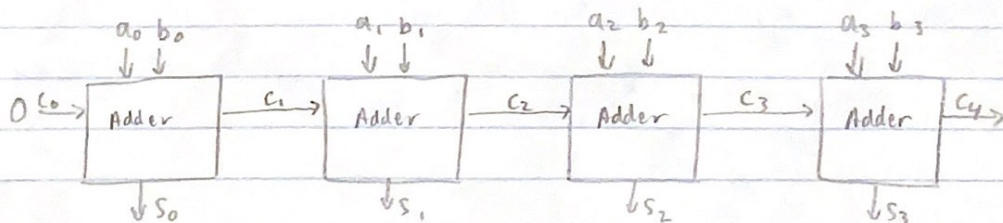 a₀ b₀ a₁ b₁ a₂ b₂ a₃ b₃
0 C₀ Adder C₁ Adder C₂ Adder C₃ Adder C₄
S₀ S₁ S₂ S₃